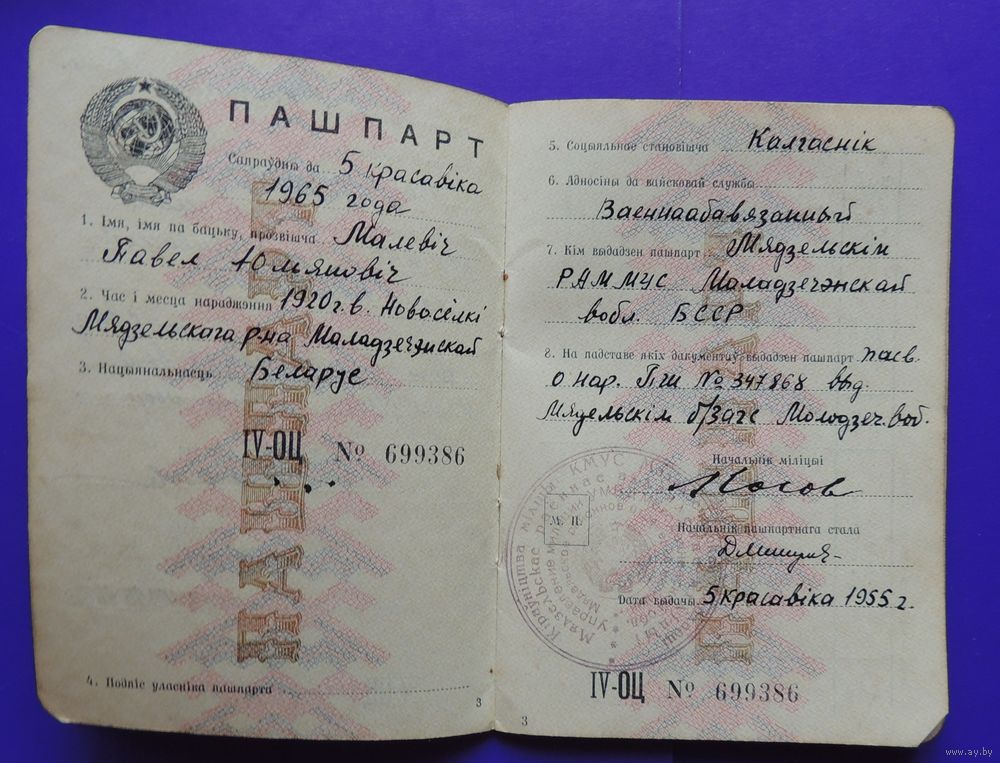 ПАШПАРТ
Сапраўдны да 5 красавіка
1965 года
1. Імя, імя па бацьку, прозвішча Малевіч
Павел Юльяновіч
2. Час і месца нараджэння 1920 г. в. Новосёлкі
Мядзельскага р-на Маладзечэнскай
3. Нацыянальнасць Беларус
IV-ОЦ № 699386
4. Подпіс уласніка пашпарта
3
5. Соцыяльнае становішча Калгаснік
6. Адносіны да вайсковай службы
Ваеннаабавязанный
7. Кім выдадзен пашпарт Мядзельскім
РАММЧС Маладзечэнскай
вобл. БССР
8. На падставе якіх дакументаў выдадзен пашпарт пасв.
о нар. ПШ № 347868 выд.
Мядельскім б/загс Молодзеч. воб.
Начальнік міліцыі
Носов
М. П.
Начальнік пашпартнага стала
Дата выдачы 5 красавіка 1955 г.
IV-ОЦ № 699386
3
www.ay.by